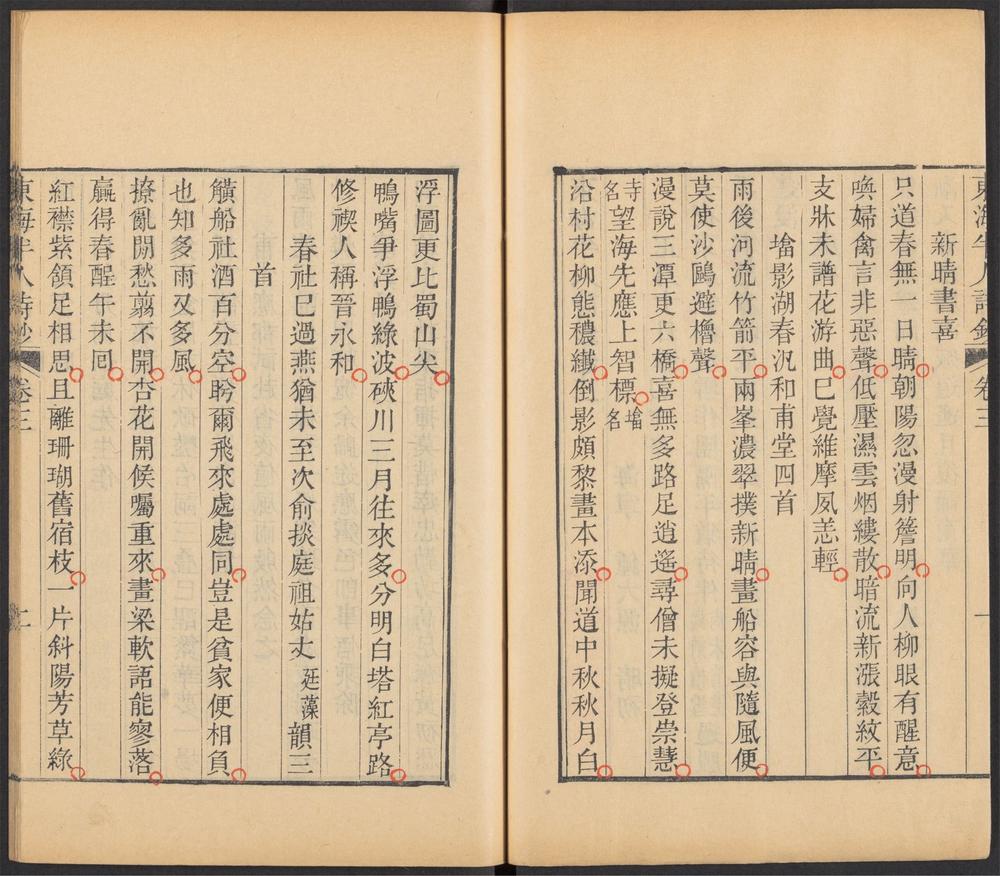 東海半人詩鈔 卷三 一
新晴書喜
只道春無一日晴朝陽忽漫射簷明向人柳眼有醒意
喚婦禽言非惡聲低壓濕雲烟縷散暗流新漲縠紋平
支牀未譜花游曲已覺維摩夙恙輕
㙮影湖春汎和甫堂四首
雨後河流竹箭平兩峯濃翠撲新晴畫船容與隨風便
莫使沙鷗避櫓聲
漫說三潭更六橋喜無多路足逍遙尋僧未擬登崇慧
寺名望海先應上智標㙮名
沿村花柳態穠纖倒影頗黎畫本添聞道中秋秋月白
浮圖更比蜀山尖
鴨嘴爭浮鴨綠波硤川三月往來多分明白塔紅亭路
修禊人稱晉永和
春社巳過燕猶未至次俞掞庭祖姑丈廷藻韻三
首
觵船社酒百分空盻爾飛來處處同豈是貧家便相負
也知多雨又多風
撩亂閒愁翦不開杏花開候囑重來畫梁軟語能寥落
贏得春酲午未回
紅襟紫領足相思且離珊瑚舊宿枝一片斜陽芳草綠
東海半人詩鈔 卷三 二